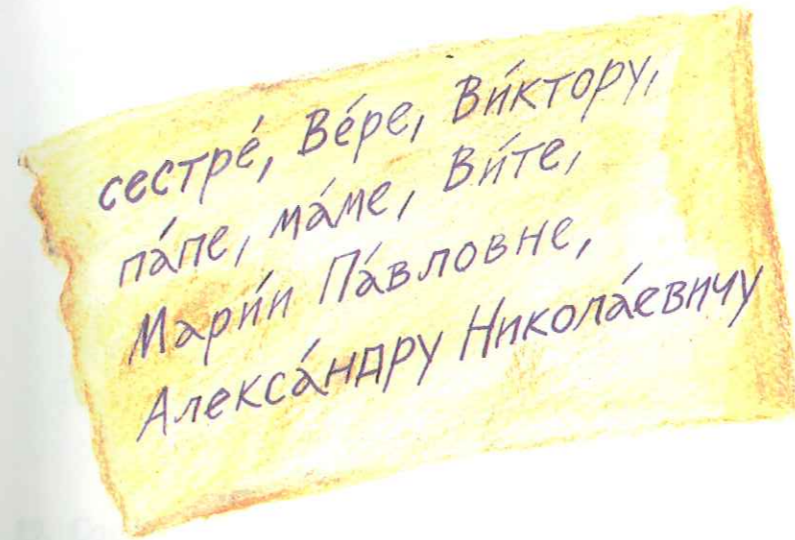 сестре́, Ве́ре, Ви́ктору,
па́пе, ма́ме, Ви́те,
Мари́и Па́вловне,
Алекса́ндру Никола́евичу